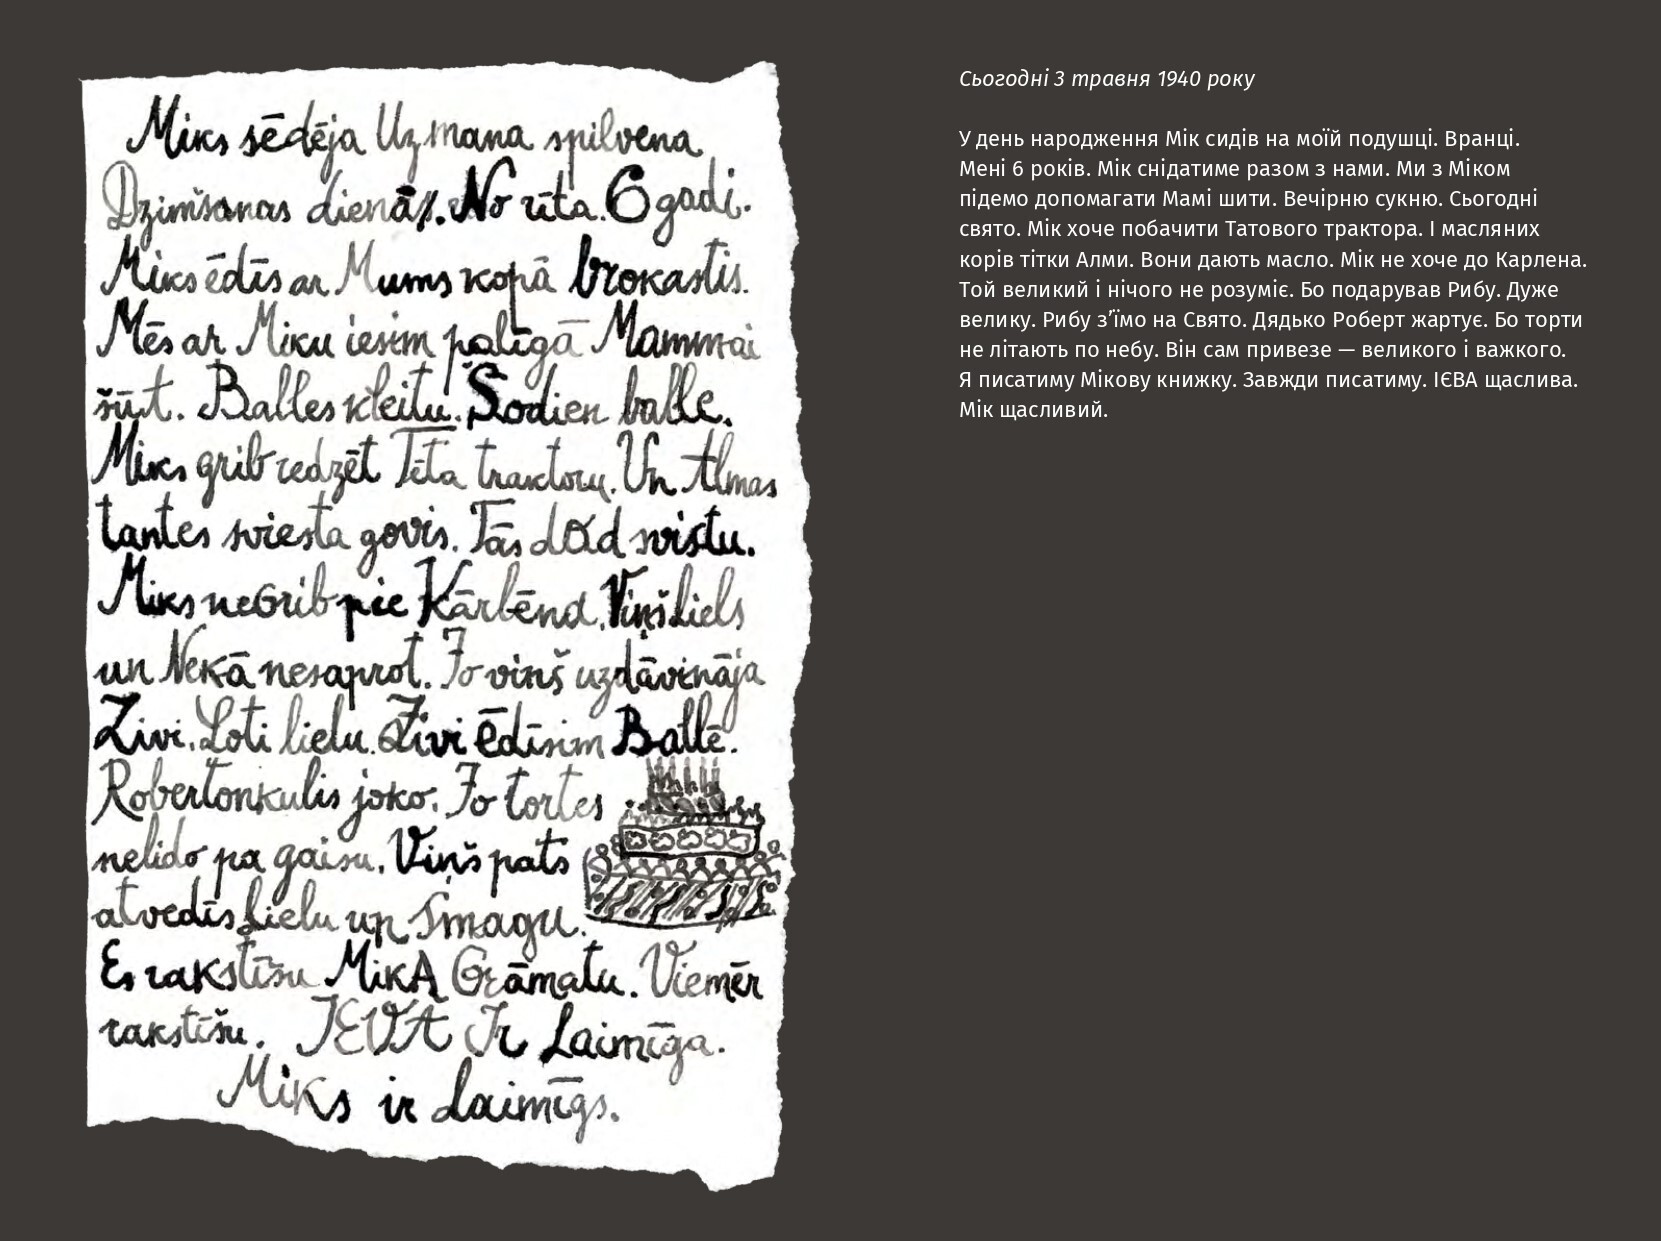 Miks sēdēja Uz mana spilvena
Dzimšanas dienā. No rīta. 6 gadi.
Miks ēdīs ar Mums kopā brokastis.
Mēs ar Miku iesim palīgā Mammai
šūt. Balles kleitu. Šodien balle.
Miks grib redzēt Tēta traktoru. Un Almas
tantes sviesta govis. Tās dod svistu.
Miks neGrib pie Kārlēna. Viņš liels
un Nekā nesaprot. Jo viņš uzdāvināja
Zivi. Ļoti lielu. Zivi ēdīsim Ballē.
Robertonkulis joko. Jo tortes
nelido pa gaisu. Viņš pats
atvedīs Lielu un Smagu.
Es rakstīšu MikA Grāmatu. Viemēr
rakstīšu. IEVA Ir Laimīga.
Miks ir Laimīgs.
Сьогодні 3 травня 1940 року
У день народження Мік сидів на моїй подушці. Вранці.
Мені 6 років. Мік снідатиме разом з нами. Ми з Міком
підемо допомагати Мамі шити. Вечірню сукню. Сьогодні
свято. Мік хоче побачити Татового трактора. І масляних
корів тітки Алми. Вони дають масло. Мік не хоче до Карлена.
Той великий і нічого не розуміє. Бо подарував Рибу. Дуже
велику. Рибу з’їмо на Свято. Дядько Роберт жартує. Бо торти
не літають по небу. Він сам привезе — великого і важкого.
Я писатиму Мікову книжку. Завжди писатиму. ІЄВА щаслива.
Мік щасливий.